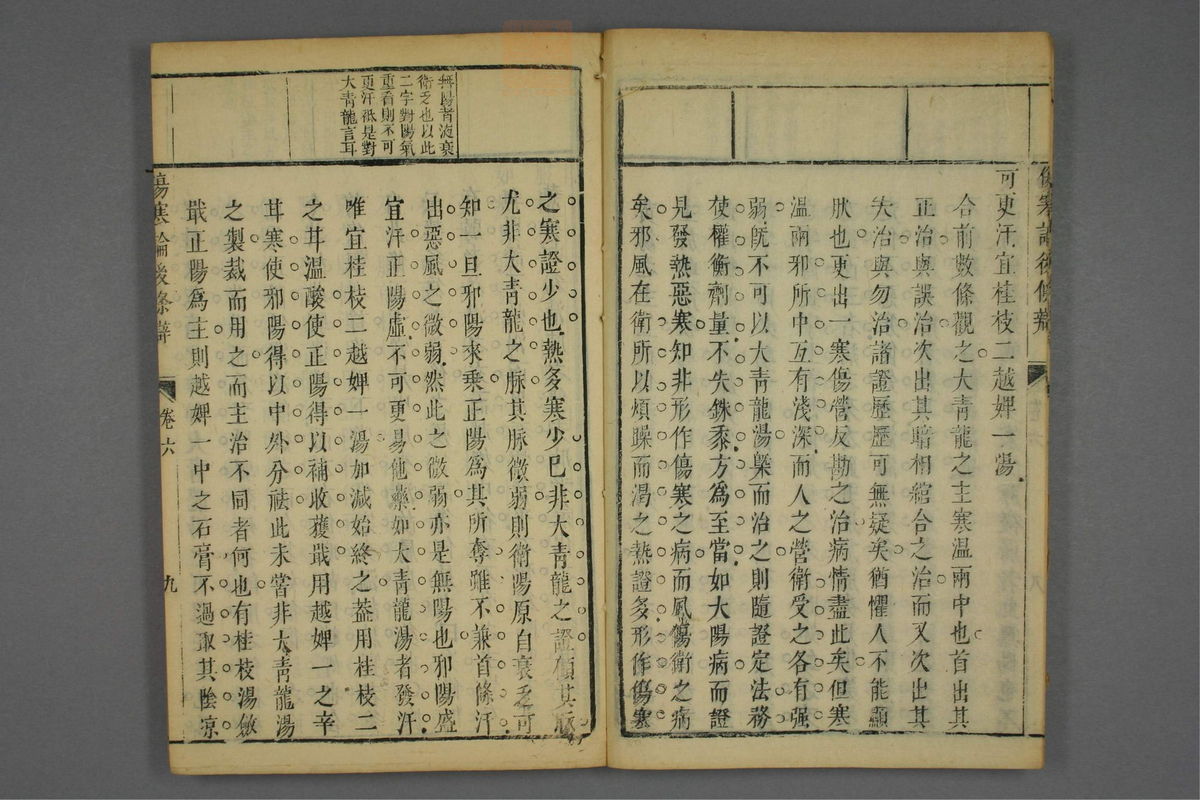 傷寒論後條辯
可更汗宜桂枝二越婢一湯
合前數條觀之大青龍之主寒溫兩中也首出其
正治與誤治次出其暗相綰合之治而又次出其
失治與勿治諸證歷歷可無疑矣猶懼人不能顯
肰也更出一寒傷營反勘之治病情盡此矣但寒
溫兩邪所中互有淺深而人之營衛受之各有强
弱旣不可以大青龍湯槩而治之則隨證定法務
使權衡劑量不失銖黍方爲至當如太陽病而證
見發熱惡寒知非形作傷寒之病而風傷衛之病
矣邪風在衛所以煩躁而渴之熱證多形作傷寒
無陽者液衰
衛乏也以此
二字對陽氣
重看則不可
更汗祇是對
大青龍言耳
之寒證少也熱多寒少已非大青龍之證傎其脉
尤非大青龍之脉其脉微弱則衛陽原自衰乏可
知一旦邪陽來乗正陽爲其所奪雖不兼首條汗
出惡風之微弱然此之微弱亦是無陽也邪陽盛
宜汗正陽虛不可更易他藥如大青龍湯者發汗
唯宜桂枝二越婢一湯加減始終之葢用桂枝二
之甘溫酸使正陽得以補收穫戢用越婢一之辛
甘寒使邪陽得以中外分祛此未嘗非大青龍湯
之製裁而用之而主治不同者何也有桂枝湯斂
戢正陽爲主則越婢一中之石膏不過取其陰凉
傷寒論後條辯
卷六
九